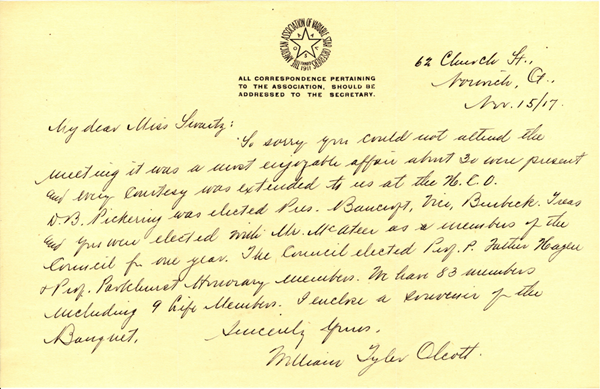 THE AMERICAN ASSOCIATION OF VARIABLE STAR OBSERVERS
FOUNDED
1911
ALL CORRESPONDENCE PERTAINING
TO THE ASSOCIATION, SHOULD BE
ADDRESSED TO THE SECRETARY.
62 Church St.,
Norwich, Ct.,
Nov. 15/17.
My dear Miss Swartz:
So sorry you could not attend the
meeting it was a most enjoyable affair about 30 were present
and every courtesy was extended to us at the H.C.O.
D.B. Pickering was elected Pres. Bancroft, Vice, Burbeck. Treas
and you were elected with Mr. McAteer as members of the
Council for one year. The Council elected Prof. P. Father Hagen
& Prof. Parkhurst Honorary members. We have 83 members
including 9 Life Members. I enclose a souvenir of the
Banquet.
Sincerely Yours,
William Tyler Olcott.